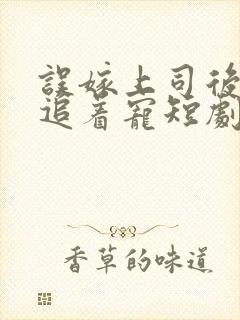 誤嫁上司後
追着寵短劇
香草的味道